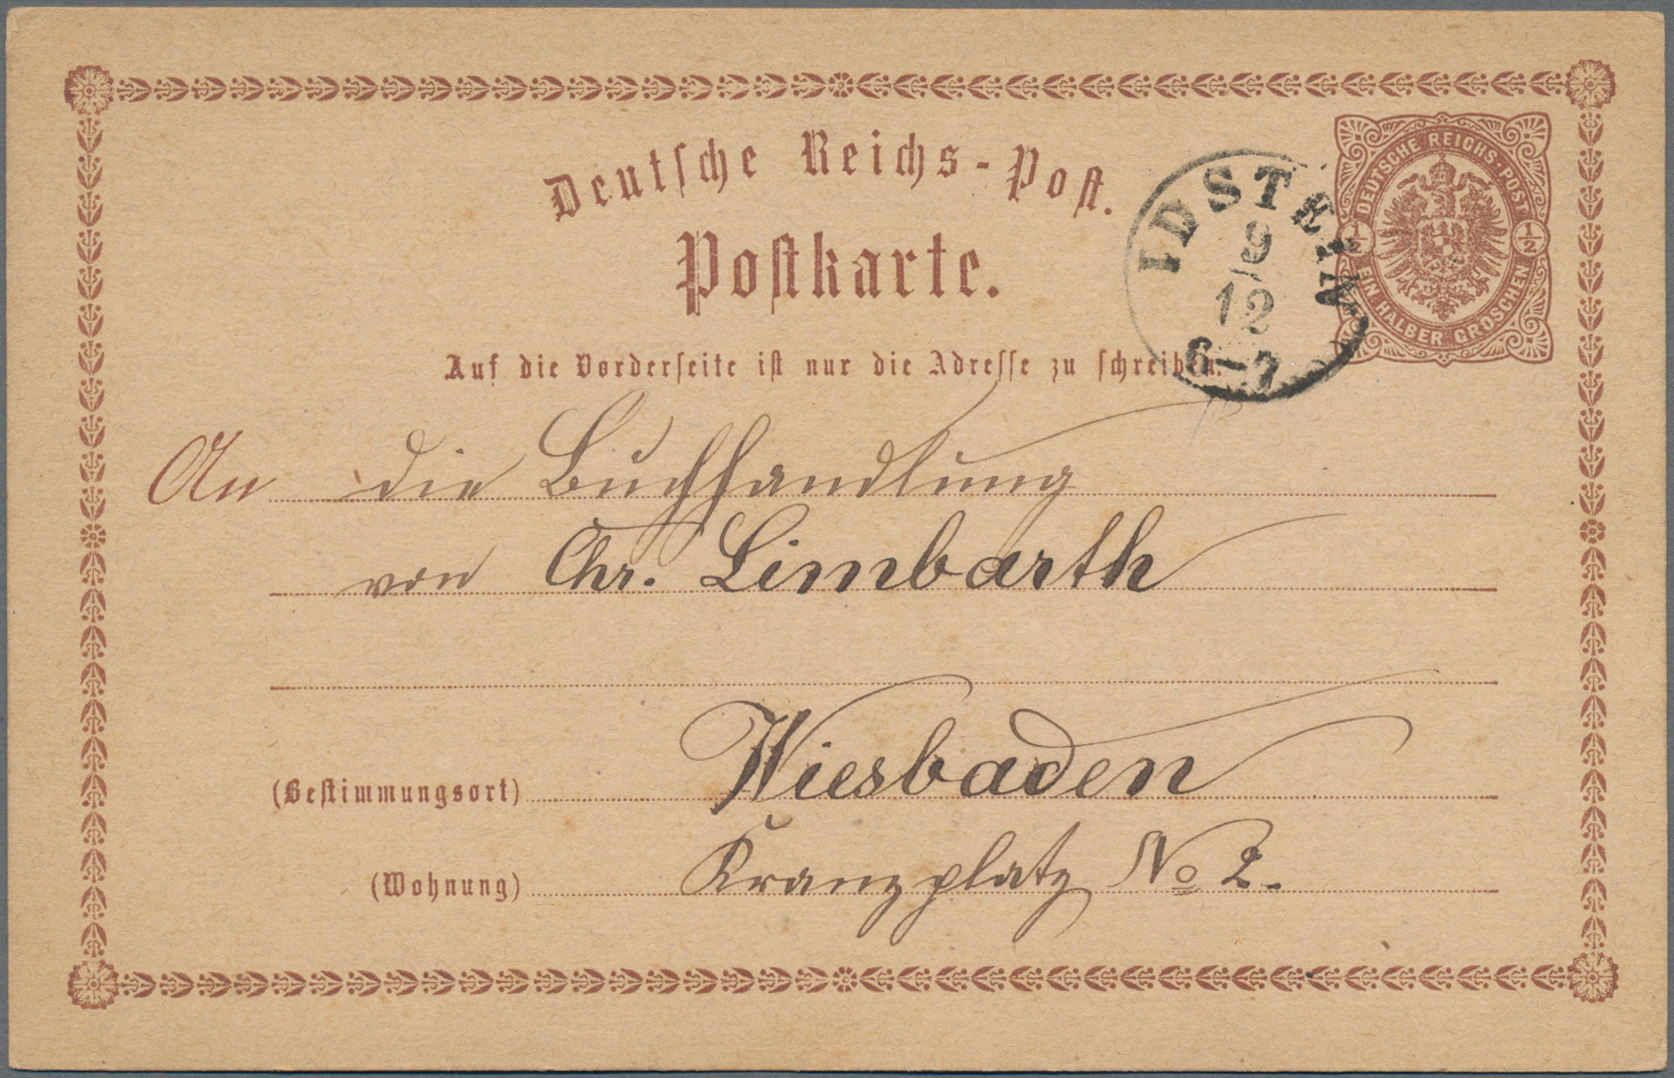 Deutsche Reichs-Post.
Postkarte.
Auf die Vorderseite ist nur die Adresse zu schreiben.
DEUTSCHE REICHS-POST
1/2 1/2
EIN HALBER GROSCHEN
IDSTEIN
9
12
6-7
An die Buchhandlung
von Chr. Limbarth
Wiesbaden
(Bestimmungsort)
(Wohnung) Kranzplatz No 2.